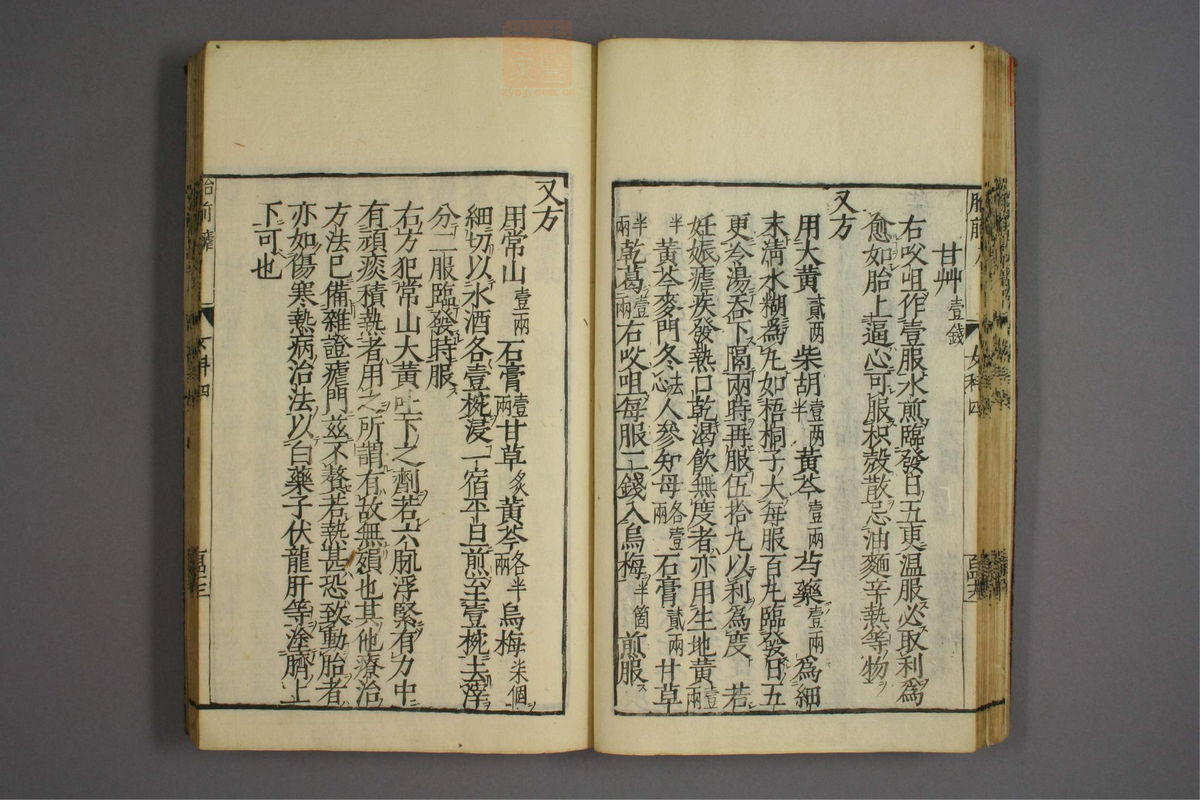 甘艸壹錢
右㕮咀作壹服水煎臨發日五更温服必取利爲
愈如胎上逼心可服枳殻散忌油麵辛熱等物
又方
用大黄貳两柴胡壹两半黄芩壹两芍藥壹两爲細
末淸水糊爲丸如梧桐子大每服百丸臨發日五
更冷湯吞下隔兩時再服伍拾丸以利爲度 若
妊娠瘧疾發熱口乾渴飮無度者亦用生地黄壹兩
半黄芩麥門冬去心人參知母各壹兩石膏貳兩甘草
半兩乾葛壹兩右㕮咀每服二錢入烏梅半箇煎服
又方
用常山壹兩石膏壹兩甘草炙黄芩各半兩烏梅柒個
細切以水酒各壹椀浸一宿平旦煎至壹椀去滓
分二服臨發時服
右方犯常山大黄吐下之劑若六脉浮緊有力中
有頑痰積熱者用之所謂有故無殞也其他療治
方法已備雜證瘧門茲不贅若熱甚恐致動胎者
亦如傷寒熱病治法以白藥子伏龍肝等塗臍上
下可也
女科四